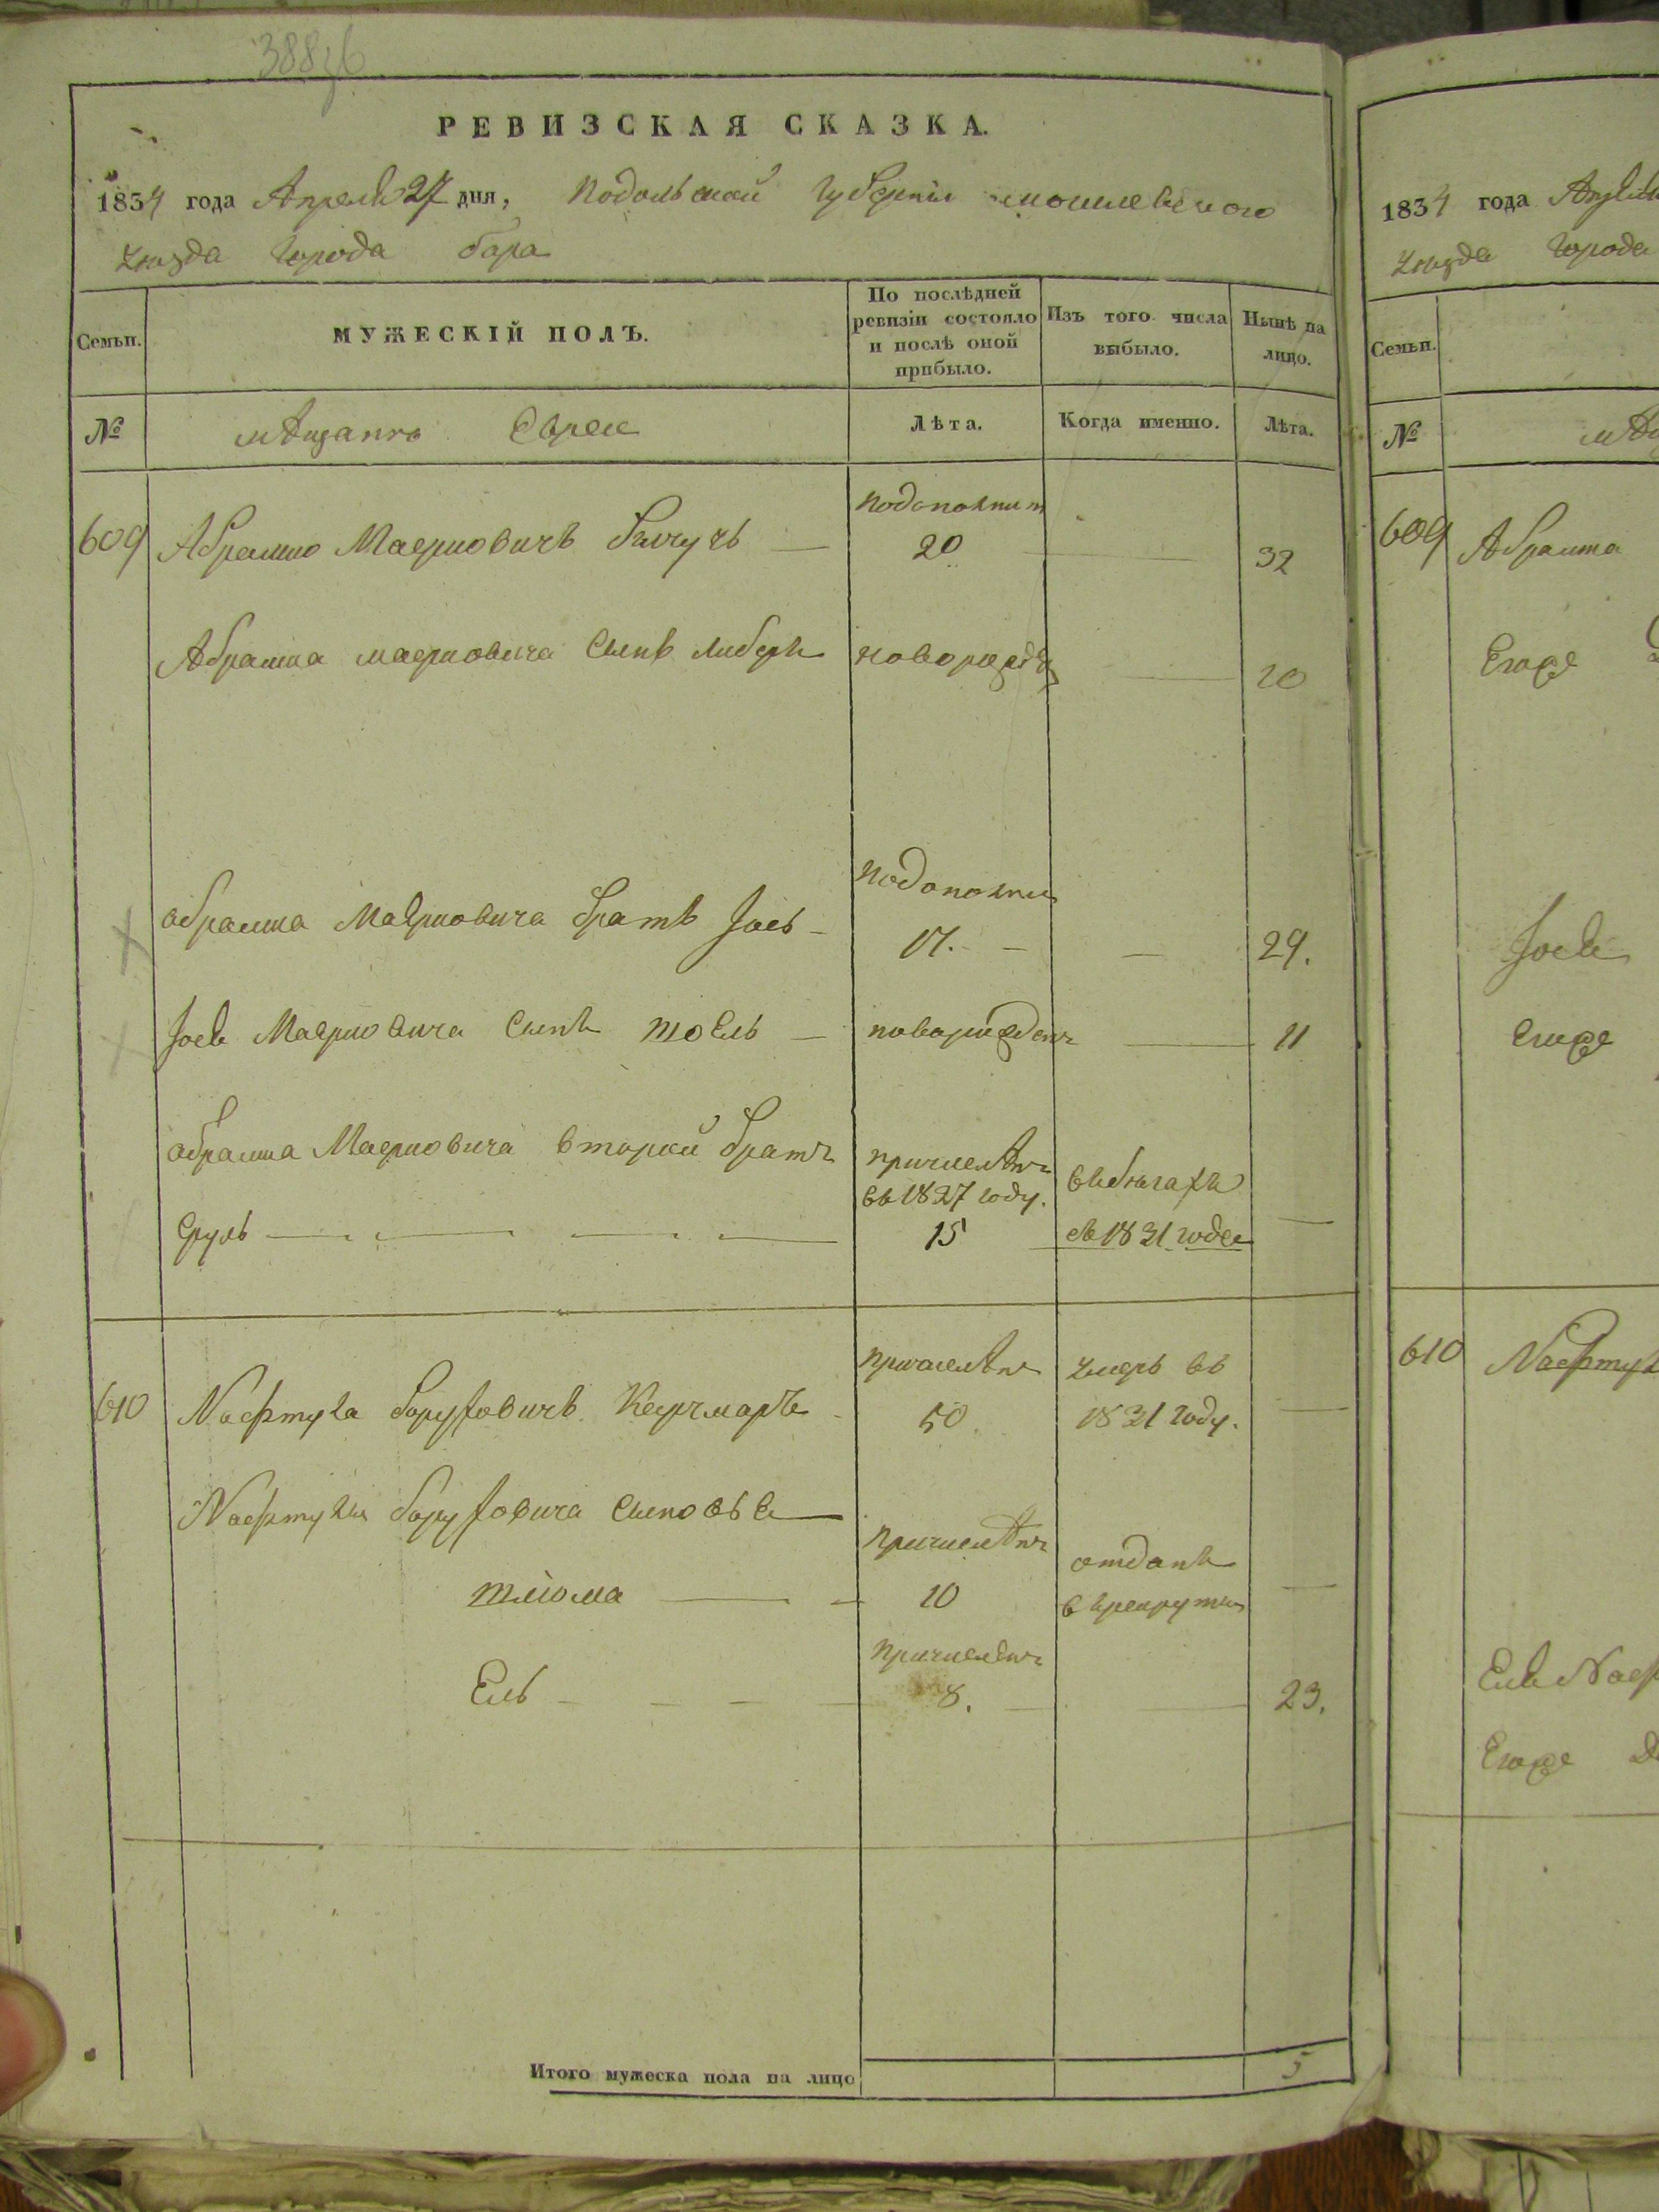 388
РЕВИЗСКАЯ СКАЗКА.
1834 года Апреля 27 дня, Подольской Губернии могилевского
уезда Города бара
Семьи.
МУЖЕСКІЙ ПОЛЪ.
По послѣдней
ревизіи состояло
и послѣ оной
прибыло.
Изъ того числа
выбыло.
Нынѣ на
лицо.
№
мѣщанъ Евреи
Лѣта.
Когда именно.
Лѣта.
609 Абрамко Маерковичъ
20
32
Абрамка маерковича Сынъ либеръ
новорожд
10
Абрамка Маерковича братъ Іось
17.
29.
Іося Маерковича Сынъ
новорожденъ
11
Абрамка Маерковича вторай братъ
Сруль
причисленъ
въ 1827 году.
15
въ бѣгахъ
съ 1831 года
610 Нафтула Боруховичъ Качмаръ
причисленъ
50.
умеръ въ
1831 году.
Нафтулы Боруховича Сыновья
шліома
причисленъ
10
отданъ
въ рекруты
Ель
причисленъ
8.
23.
Итого мужеска пола на лицо
5
1834 года
уезда Города
Семьи.
№
609 Абрамка
Егоже
Іося
Егоже
610
Еля
Егоже